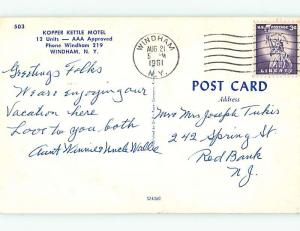 503
KOPPER KETTLE MOTEL
12 Units — AAA Approved
Phone Windham 219
WINDHAM, N. Y.
WINDHAM
AUG 21
5 PM
1961
N.Y.
3¢
LIBERTY
POST CARD
Address
Greetings Folks
We are enjoying our
Vacation here
Love to you both
Aunt Winnie & Uncle Wallie
Mr & Mrs Joseph Tukis
242 Spring St
Red Bank
N.J.